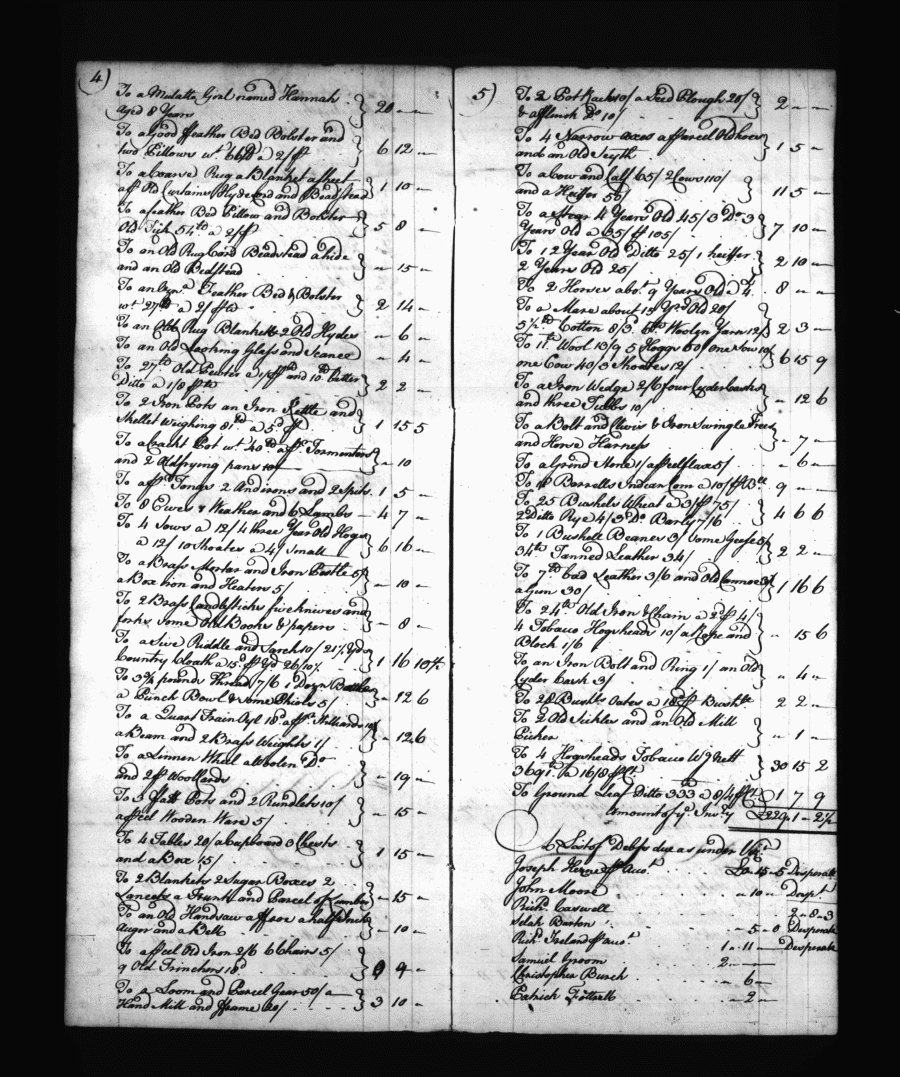 4)
To a Mulatto Girl named Hannah
Aged 8 Years } 20 - -
To a Good ffeather Bed Bolster and
two Pillows wt. 66 lb a 2/ } 6 12 -
To a Coarse Rug a Blanket a sheet
a Old Curtains Hyde Cord and Beadstead } 1 10 -
To a feather Bed Pillow and Bolster
Old Tick 54 lb a 2/ } 5 8 -
To an Old Rug Cord Beadstead a hide
and an Old Bedstead } - 15 -
To an Feather Bed & Bolster
wt 27 lb a 2/ } 2 14 -
To an Old Rug Blankett 2 Old Hydes - 6 -
To an Old Looking Glass and - 4 -
To 27 lb Old Pewter a and 10 lb better
Ditto a 1/8 } 2 2 -
To 2 Iron Pots an Iron Kettle and
Skellet Weighing 81 lb a 5d } 1 15 5
To a Crackt Pot wt. 40 lb a
and 2 Old frying pans 10/ } - 10
To a pr Tongs 2 Andirons and 2 Spits 1 5 -
To 8 Ewes 1 Weather and 6 Lambs - 4 7 -
To 4 Sows a 12/ 4 three Year Old Hogs
a 12/ 10 Shoates a 4/ Small } 6 16 -
To a Brass Mortar and Iron Pestle 5/
a Box iron and Heaters 5/ } - 10 -
To 2 Brass Candlesticks five knives and
forks Some Old Books & papers } - 8 -
To a Sive Riddle and Search 10/ 21½ Yds
Country Cloath a 15d Yd 26/10½ } 1 16 10½
To 3¾ pounds Thread 7/6 1 Dozn Bottles
a Punch Bowl & Some 5/ } - 12 6
To a Quart Train Oyl 18d a pr Stilliards 10/
a Beam and 2 Brass Weights 1/ } - 12 6
To a Linnen Wheel a Woolen Do
and 2 pr Woolcards } - 19 -
To 3 ffatt Pots and 2 Rundlets 10/
a Wooden Ware 5/ } - 15 -
To 4 Tables 20/ a Cupboard 3 Chests
and a Box 15/ } 1 15 -
To 2 Blankets 2 Sugar Boxes 2
Lancets a Trunk and Parcel of Lumber } - 15 -
To an Old Handsaw a ffroe a half Inch
Augor and a Bell } - 10 -
To a Old Iron 2/6 6 Chairs 5/
9 Old Trenchers 18d } 9 -
To a Loom and Parcel Gear 50/ a
Hand Mill and fframe 20/ } 3 10 -
5)
To 2 Pot Racks 10/ a Seed Plough 20/
& a ffluick Do 10/ } 2 - -
To 4 Narrow axes a Parcel Old hoes
and an Old Scyth } 1 5 -
To a Cow and Calf 65/ 2 Cows 110/
and a Heiffer 50/ } 11 5 -
To a Stear 4 Years Old 45/ 3 Do 3
Years Old a 35/ 105/ } 7 10 -
To 1 2 Year Old Ditto 25/ 1 heiffer
2 Years Old 25/ } 2 10 -
To 2 Horses abot. 9 Years Old a 4 8 - -
To a Mare about 15 Yrs Old 20/
5½ lb Cotton 8/3 6 lb Wooln Yarn 12/ } 2 3 -
To 11 lb Wool 13/9 5 Hoggs 60/ one Sow 10/
one Cow 40/ 3 Shoates 12/ } 6 15 9
To a Iron Wedge 2/6 four Cyder Casks
and three Tubbs 10/ } - 12 6
To a Bolt and Clevis & Iron Swingle Trees
and Horse Harness } - 7 -
To a Grind Stone 1/ a flax 5/ - 6 -
To 18 Barrells Indean Corn a 10/ 9 - -
To 25 Bushels Wheat a 3/ 75/
2 Ditto Rye 4/ 3 Do Barly 7/6 } 4 6 6
To 1 Bushell Beanes 3/ Some Geese 5/
34 lb Tanned Leather 34/ } 2 2 -
To 7 lb bad Leather 3/6 and Old Cannoe 3/
a Gun 30/ } 1 16 6
To 24 lb Old Iron & Chain a 2d 4/
4 Tobacco Hogsheads 10/ a Rope and
Block 1/6 } - 15 6
To an Iron Bolt and Ring 1/ an Old
Cyder Cask 3/ } - 4 -
To 28 Bushls Oates a 18d Bushl. 2 2 -
To 2 Old Sickles and an Old Mill
Picker } - 1 -
To 4 Hogsheads Tobacco Wg Nett
3691 lb a 16/8 } 30 15 2
To Ground Leaf Ditto 333 a 8/4 1 7 9
Amount of ye. Invty £229.1-2½
A List of Debts due as under Vizt
Joseph Herne Accot. £0-15-5 Desperate
John Moore - 10 - Despt
Richd Caswell 2-8-3
Selah Burton - 5 - 8 Desperate
Richd Ireland Accot 1 - 11 - Desperate
Samuel Groom 2 - -
Christopher Burch - 6 -
Patrick - 2 -